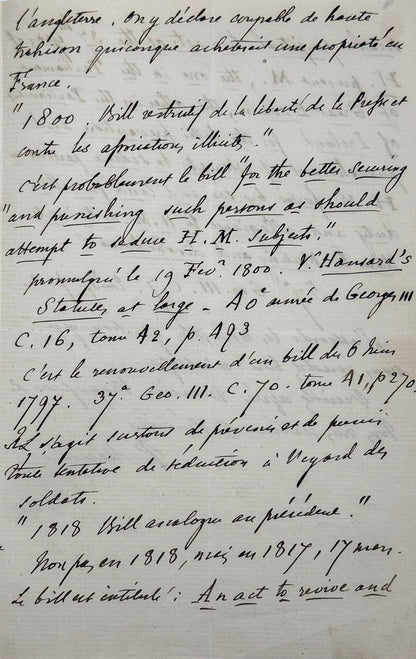 l'angleterre. On y déclare coupable de haute
trahison quiconque acheterait une propriété en
France.
"1800. Bill restrictif de la liberté de la Presse et
contre les associations illicites."
c'est probablement le bill "for the better securing
"and punishing such persons as should
attempt to seduce H. M. Subjects."
promulgué le 19 Fevr 1800. Vr Hansard's
Statutes at large - 40e année de Georges III
C. 16, tome 42, p. 493
c'est le renouvellement d'un bill du 6 Juin
1797. 37e Geo. III. C. 70. tome 41, p 270.
Il s'agit surtout de prévenir et de punir
toute tentative de séduction à l'égard des
soldats.
"1818 Bill analogue au précédent."
Non pas en 1818, mais en 1817, 17 mars.
Le bill est intitulé: An act to revive and